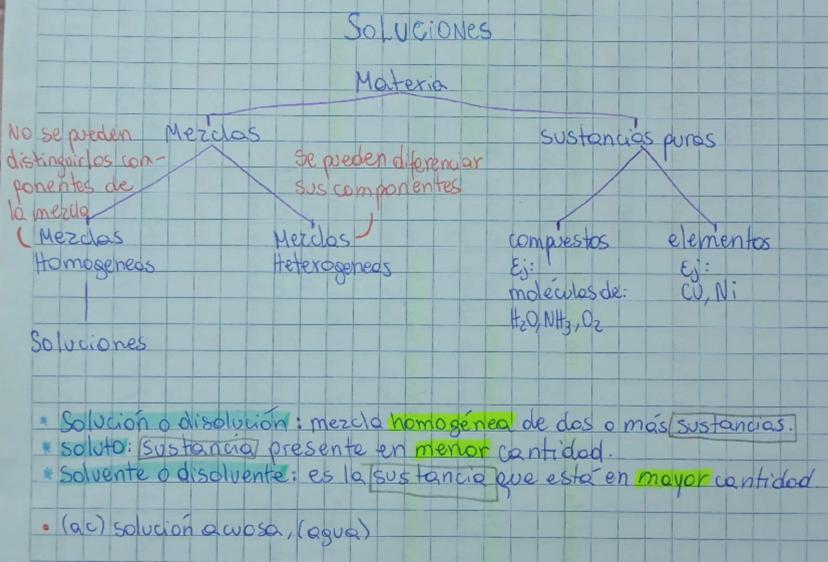 SOLUCIONES
Materia
Mezclas
sustancias puras
No se pueden
distinguirlos com-
ponentes de
la mezcla
se pueden diferenciar
sus componentes
Mezclas
Homogeneas
Mezclas
Heterogeneas
compuestos
Ej:
moléculas de:
H₂O, NH₃, O₂
elementos
Ej:
Cu, Ni
Soluciones
* Solución o disolución: mezcla homogénea de dos o más sustancias.
* soluto: sustancia presente en menor cantidad.
* Solvente o disolvente: es la sustancia que está en mayor cantidad
• (ac) solución acuosa, (agua)